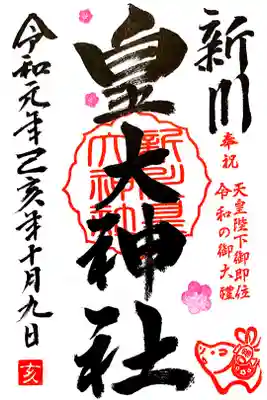 新川
皇大神社
奉祝
天皇陛下御即位
令和の御大禮
令和元年己亥年十月九日
亥